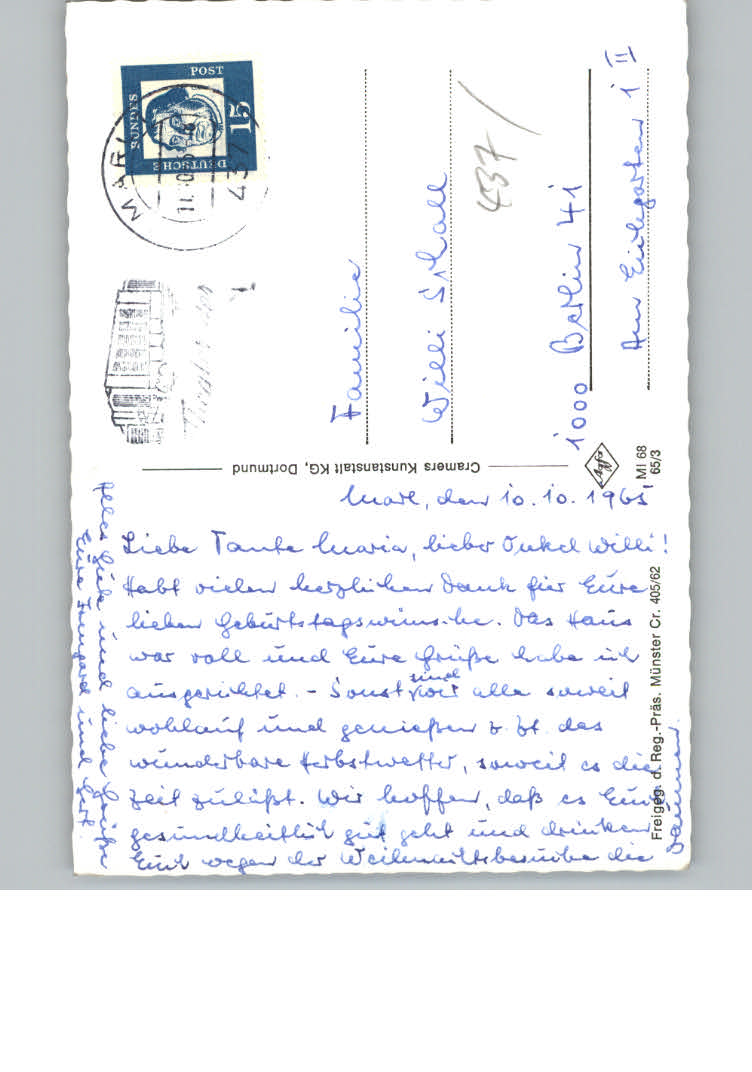 Marl, den 10.10.1965
Liebe Tante Maria, lieber Onkel Willi!
Habt vielen herzlichen Dank für Eure
lieben Geburtstagswünsche. Das Haus
war voll und Eure Grüße habe ich
ausgerichtet. - Sonst sind wir alle soweit
wohlauf und genießen z. Zt. das
wunderbare Herbstwetter, soweit es die
Zeit zuläßt. Wir hoffen, daß es Euch
gesundheitlich gut geht und drücken
Euch wegen der Weihnachtsbesuche die
Daumen.
Alles Gute und liebe Grüße
Eure Irmgard und
Familie
Willi Schall
1000 Berlin 41
Am Eichgarten 1 II
437/
DEUTSCHE BUNDESPOST
15
MARL
437
Cramers Kunstanstalt KG, Dortmund
Agfa
MI 68
65/3
Freigeg. d. Reg.-Präs. Münster Cr. 405/62